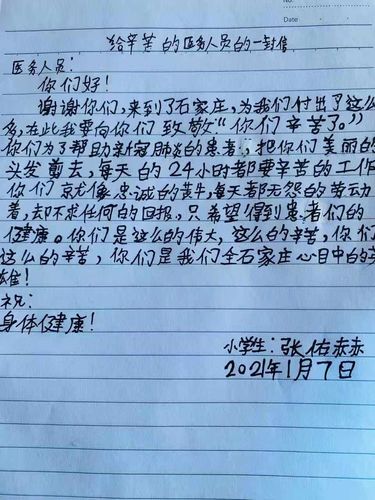 No:
Date
给辛苦的医务人员的一封信
医务人员:
你们好!
谢谢你们,来到了石家庄,为我们付出了这么
多,在此我要向你们致敬“你们辛苦了。”
你们为了帮助新冠肺炎的患者,把你们美丽的
头发剪去,每天的24小时者都要辛苦的工作
你们就像忠诚的黄牛,每天都无怨的劳动
着,却不求任何的回报,只希望得到患者们的
健康。你们是这么的伟大,这么的辛苦,你们
这么的辛苦,你们是我们全石家庄心目中的英
雄!
祝:
身体健康!
小学生:张佑赤赤
2021年1月7日